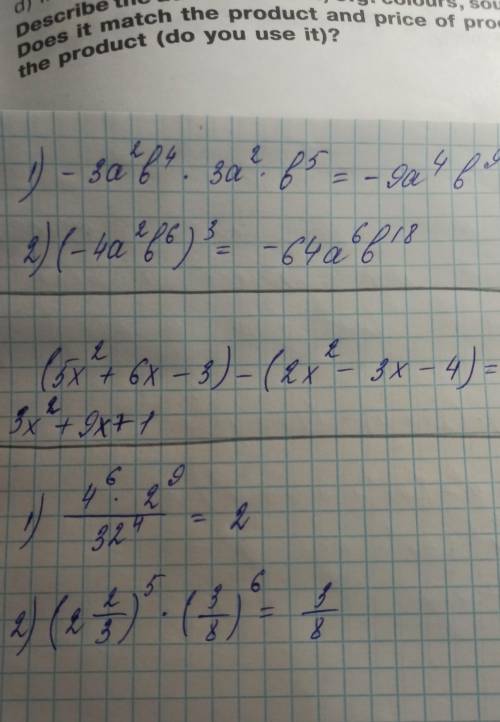 d)
Describe the
colours, sou
Does it match the product and price of pro
the product (do you use it)?
1) - 3a²b⁴ · 3a² · b⁵ = - 9a⁴b⁹
2) (-4a²b⁶)³ = -64a⁶b¹⁸
(5x² + 6x - 3) - (2x² - 3x - 4) =
3x² + 9x + 1
1) \frac{4⁶ · 2⁹}{32⁴} = 2
2) (2\frac{2}{3})⁵ · (\frac{3}{8})⁶ = \frac{3}{8}